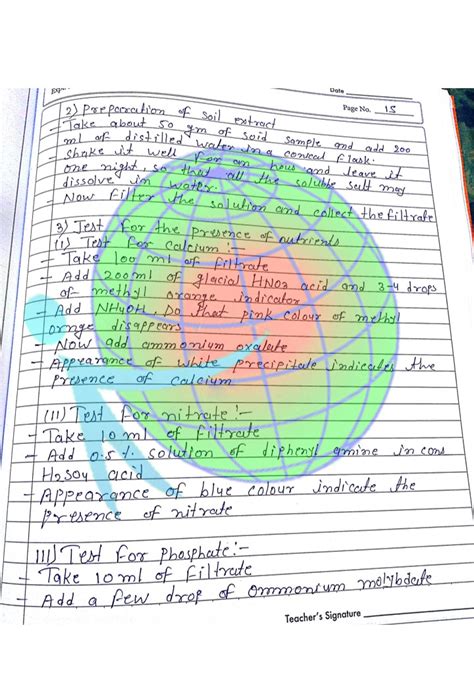 Date
Page No. 15
2) Preparation of soil extract
- Take about 50 gm of soid sample and add 200
ml of distilled water in a conical flask.
- shake it well for an hous and leave it
one night, so that all the soluble salt may
dissolve in water.
- Now filter the solution and collect the filtrate
3) Test for the presence of nutrients
(i) Test for calcium :-
- Take 100 ml of filtrate
- Add 200ml of glacial HNO3 acid and 3-4 drops
of methyl orange indicator
- Add NH4OH, so that pink colour of methyl
ornge disappears
- Now add ammonium oxalate
- Appearance of white precipitate indicates the
presence of calcium
(11) Test for nitrate :-
- Take 10 ml of filtrate
- Add 0.5 % solution of diphenyl amine in cons
H2SO4 acid
- Appearance of blue colour indicate the
presence of nitrate
111) Test for phosphate :-
- Take 10 ml of filtrate
- Add a few drop of ommonium molybdate
Teacher's Signature